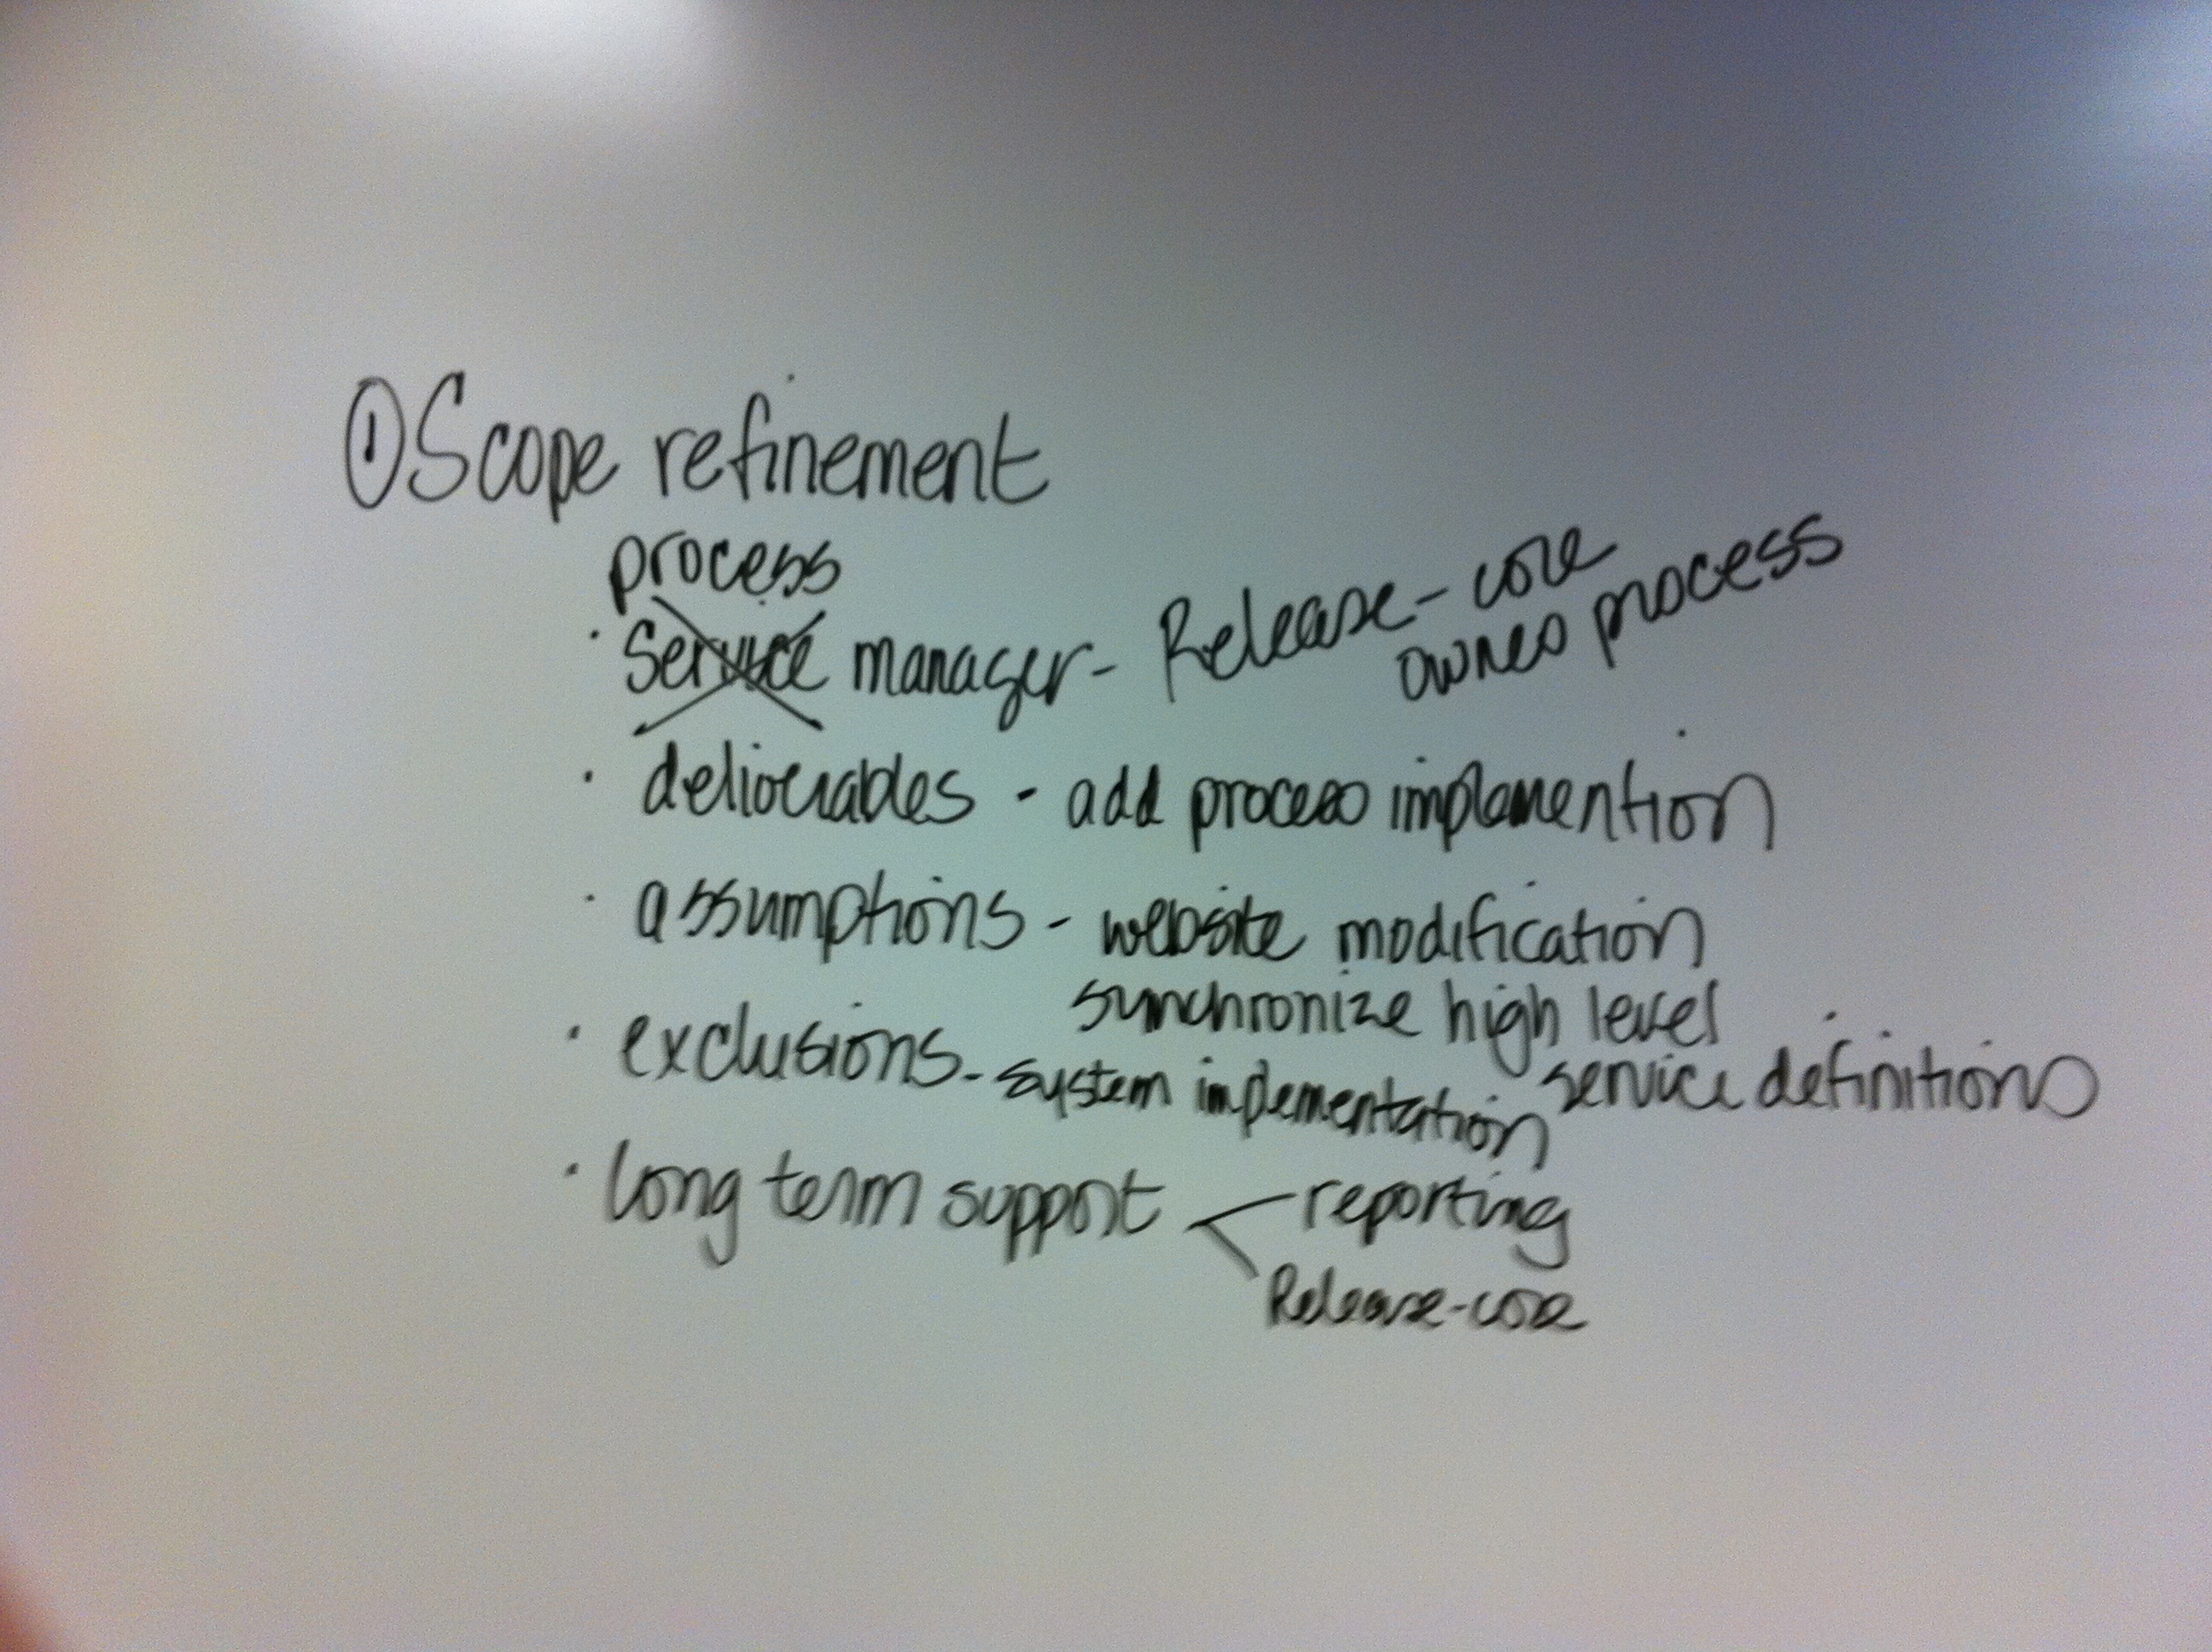 ① Scope refinement
process
· Service manager - Release - core
owned process
· deliverables - add process implemention
· assumptions - website modification
synchronize high level
service definitions
· exclusions - system implementation
· long term support - reporting
Release-core